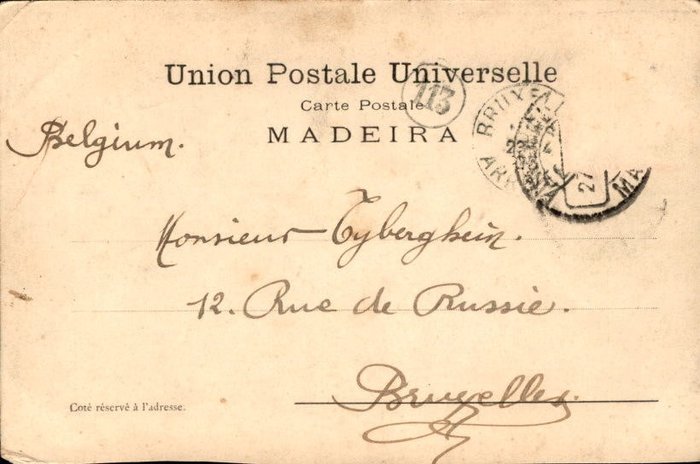 Union Postale Universelle
Carte Postale
113
MADEIRA
BRUXEL
AR
27
MA
Belgium.
Monsieur Tyberghein.
12. Rue de Russie.
Bruxelles.
Coté réservé à l'adresse.